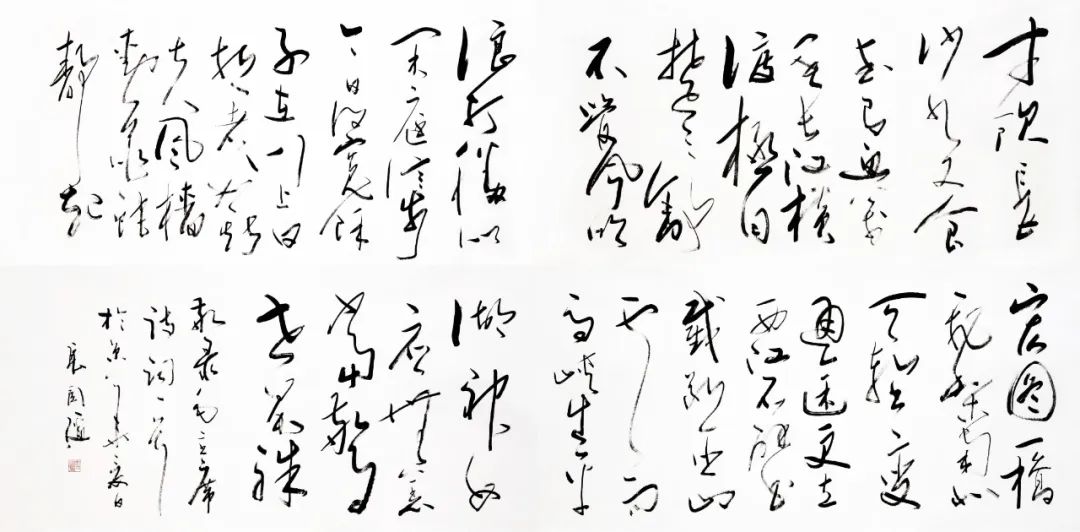 才饮长
沙水又食
武昌鱼万
里长江横
渡极目
楚天舒
不管风吹
浪打胜似
闲庭信步
今日得宽馀
子在川上曰
逝者如斯
夫风樯
动龟蛇
静起
宏图一桥
飞架南北
天堑变
通途更立
西江石壁
截断巫山
云雨
高峡出平
湖神女
应无恙
当惊
世界殊
敬录毛主席
诗词一首
於京夏日